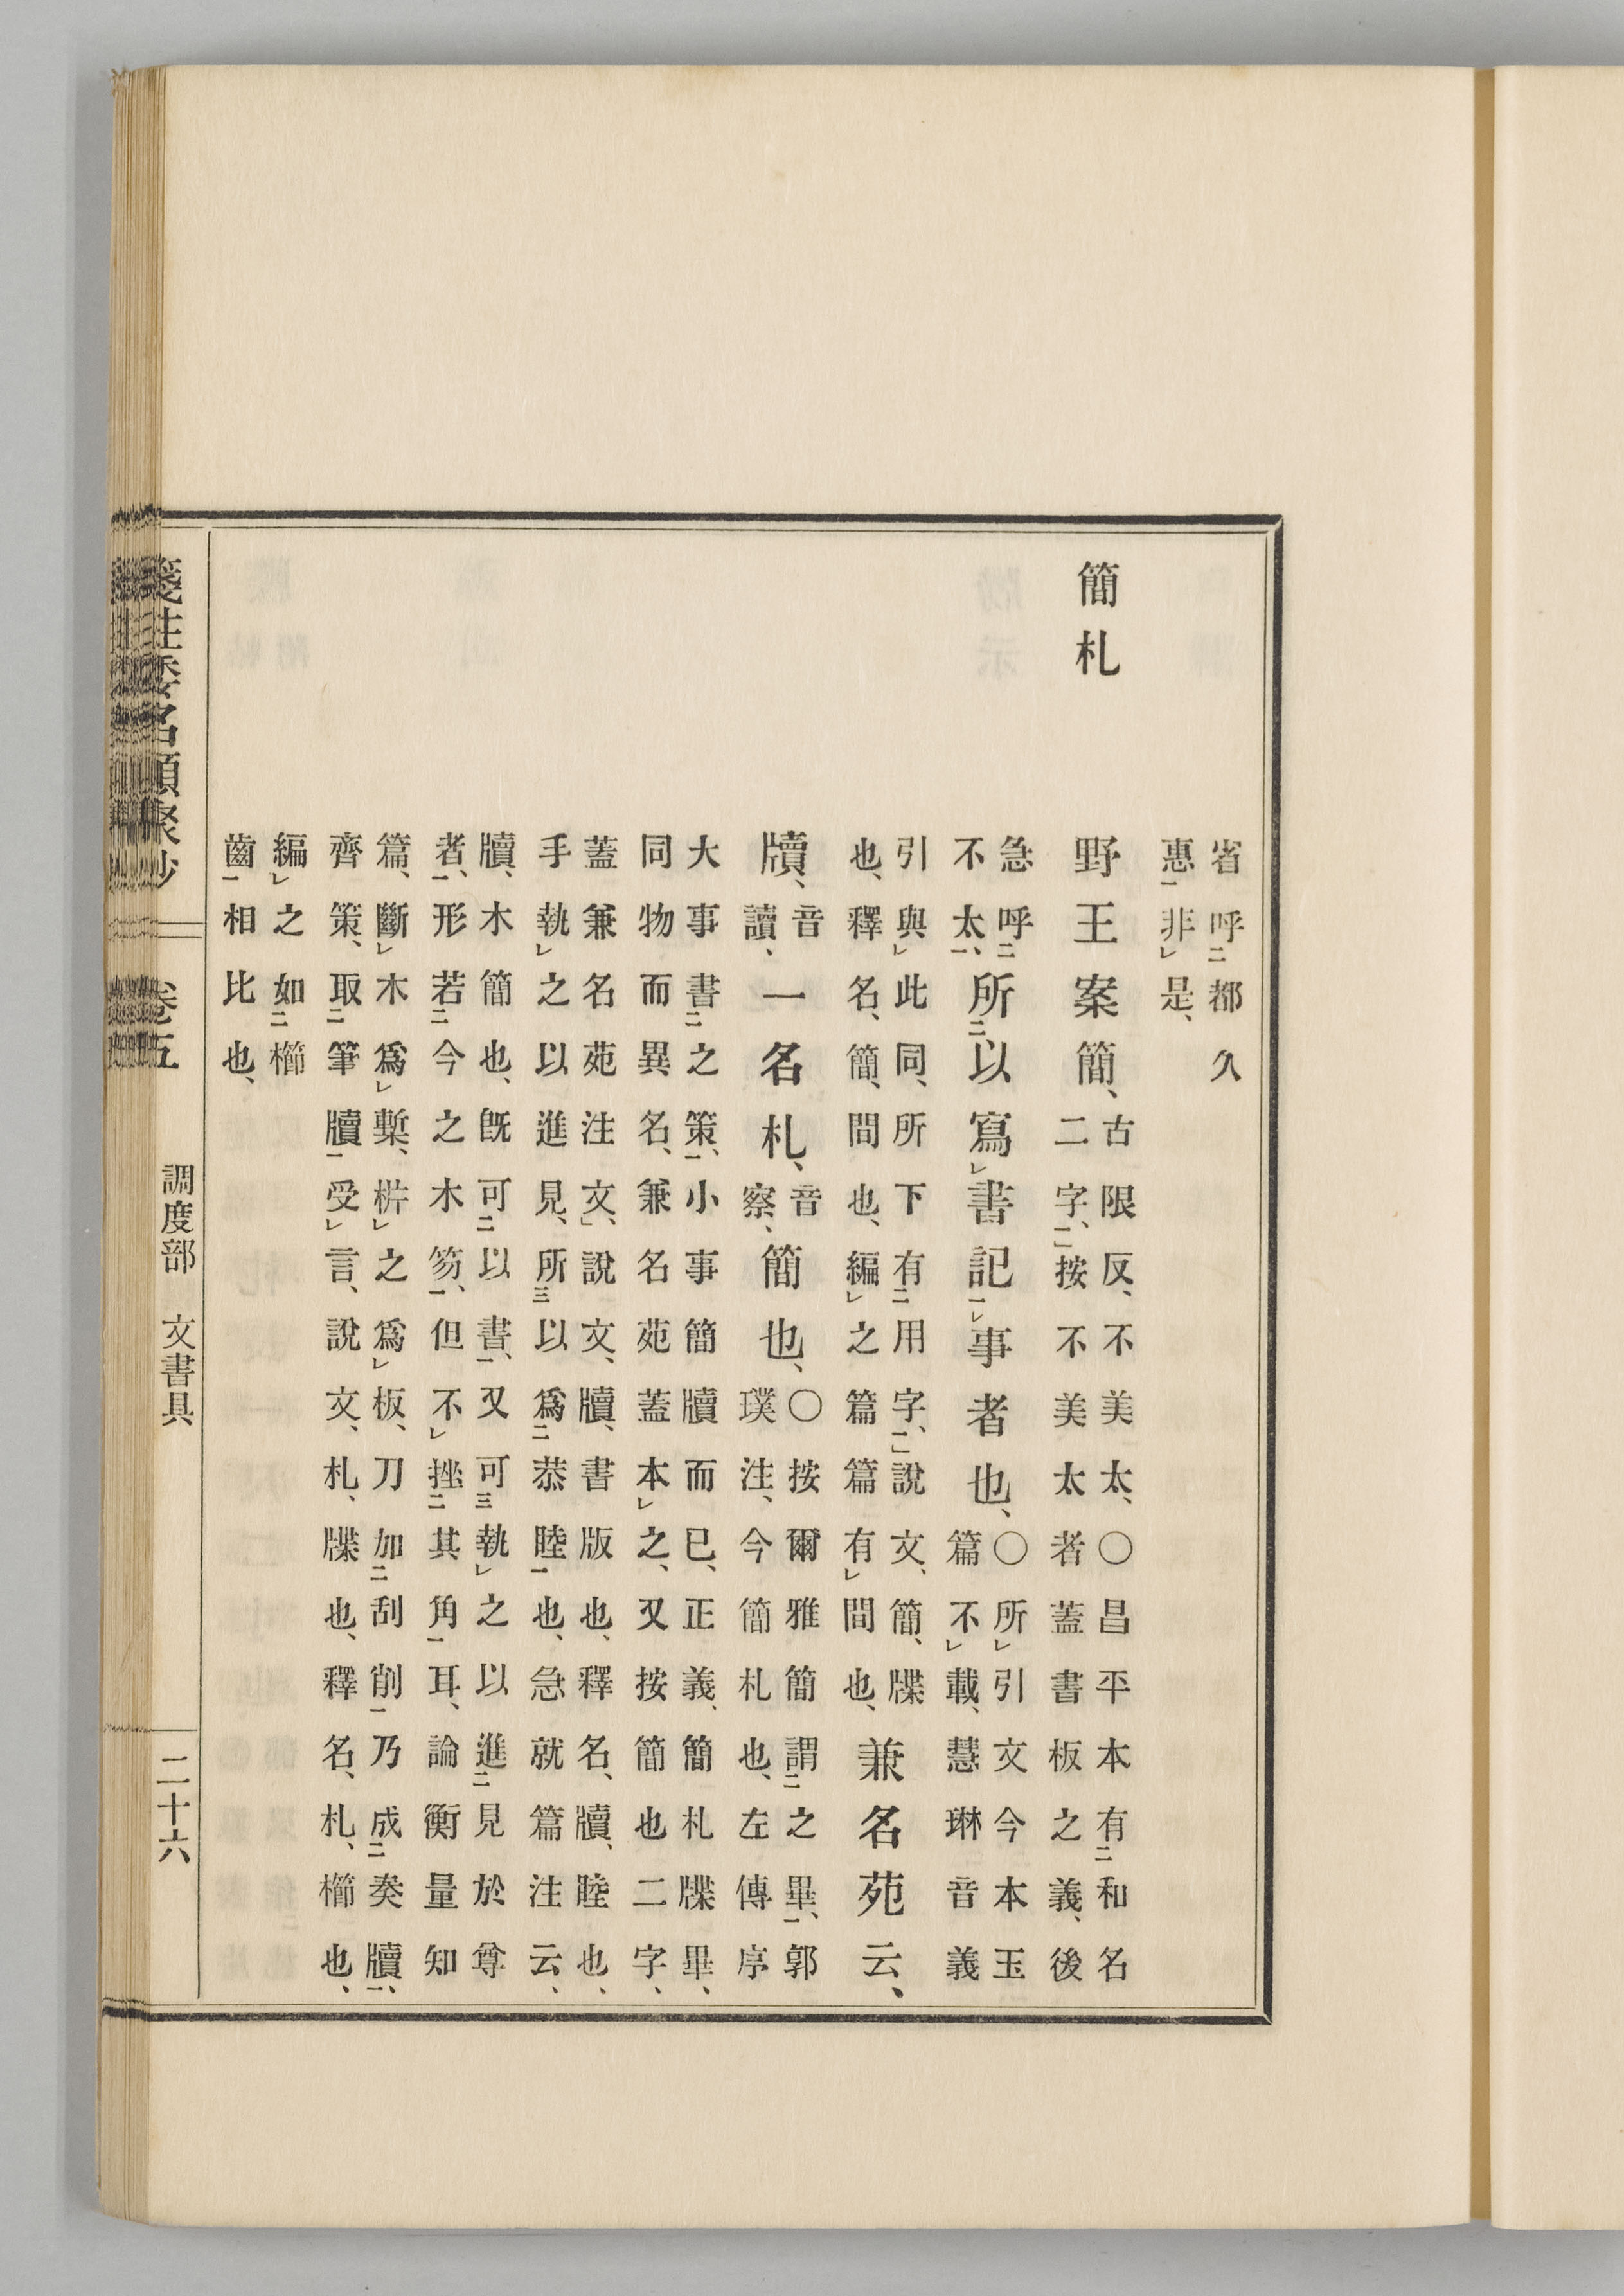 省呼二都久
惠一非レ是、
簡札
野王案簡、
古限反、不美太、〇昌平本有二和名
二字、一按不美太者蓋書板之義、後
急呼二
不太、一
所二以寫レ書記一レ事者也、
〇所レ引文今本玉
篇不レ載、慧琳音義
引與レ此同、所下有二用字、一」說文、簡、牒
也、釋名、簡、間也、編レ之篇篇有レ間也、
兼名苑云、
牘、
音
讀、
一名札、
音
察、
簡也、
〇按爾雅簡謂二之畢、一郭
璞注、今簡札也、左傳序
大事書二之策、一小事簡牘而已、正義、簡札牒畢、
同物而異名、兼名苑蓋本レ之、又按簡也二字、
蓋兼名苑注文、」說文、牘、書版也、釋名、牘、睦也、
手執レ之以進見、所三以爲二恭睦一也、急就篇注云、
牘、木簡也、既可二以書、一又可三執レ之以進二見於尊
者、一形若二今之木笏、一但不レ挫二其角一耳、論衡量知
篇、斷レ木爲レ槧、㭊レ之爲レ板、刀加二刮削一乃成二奏牘、一
齊策、取二筆牘一受レ言、說文、札、牒也、釋名、札、櫛也、
編レ之如二櫛
齒一相比也、
箋注倭名類聚抄 卷五 調度部 文書具 二十六